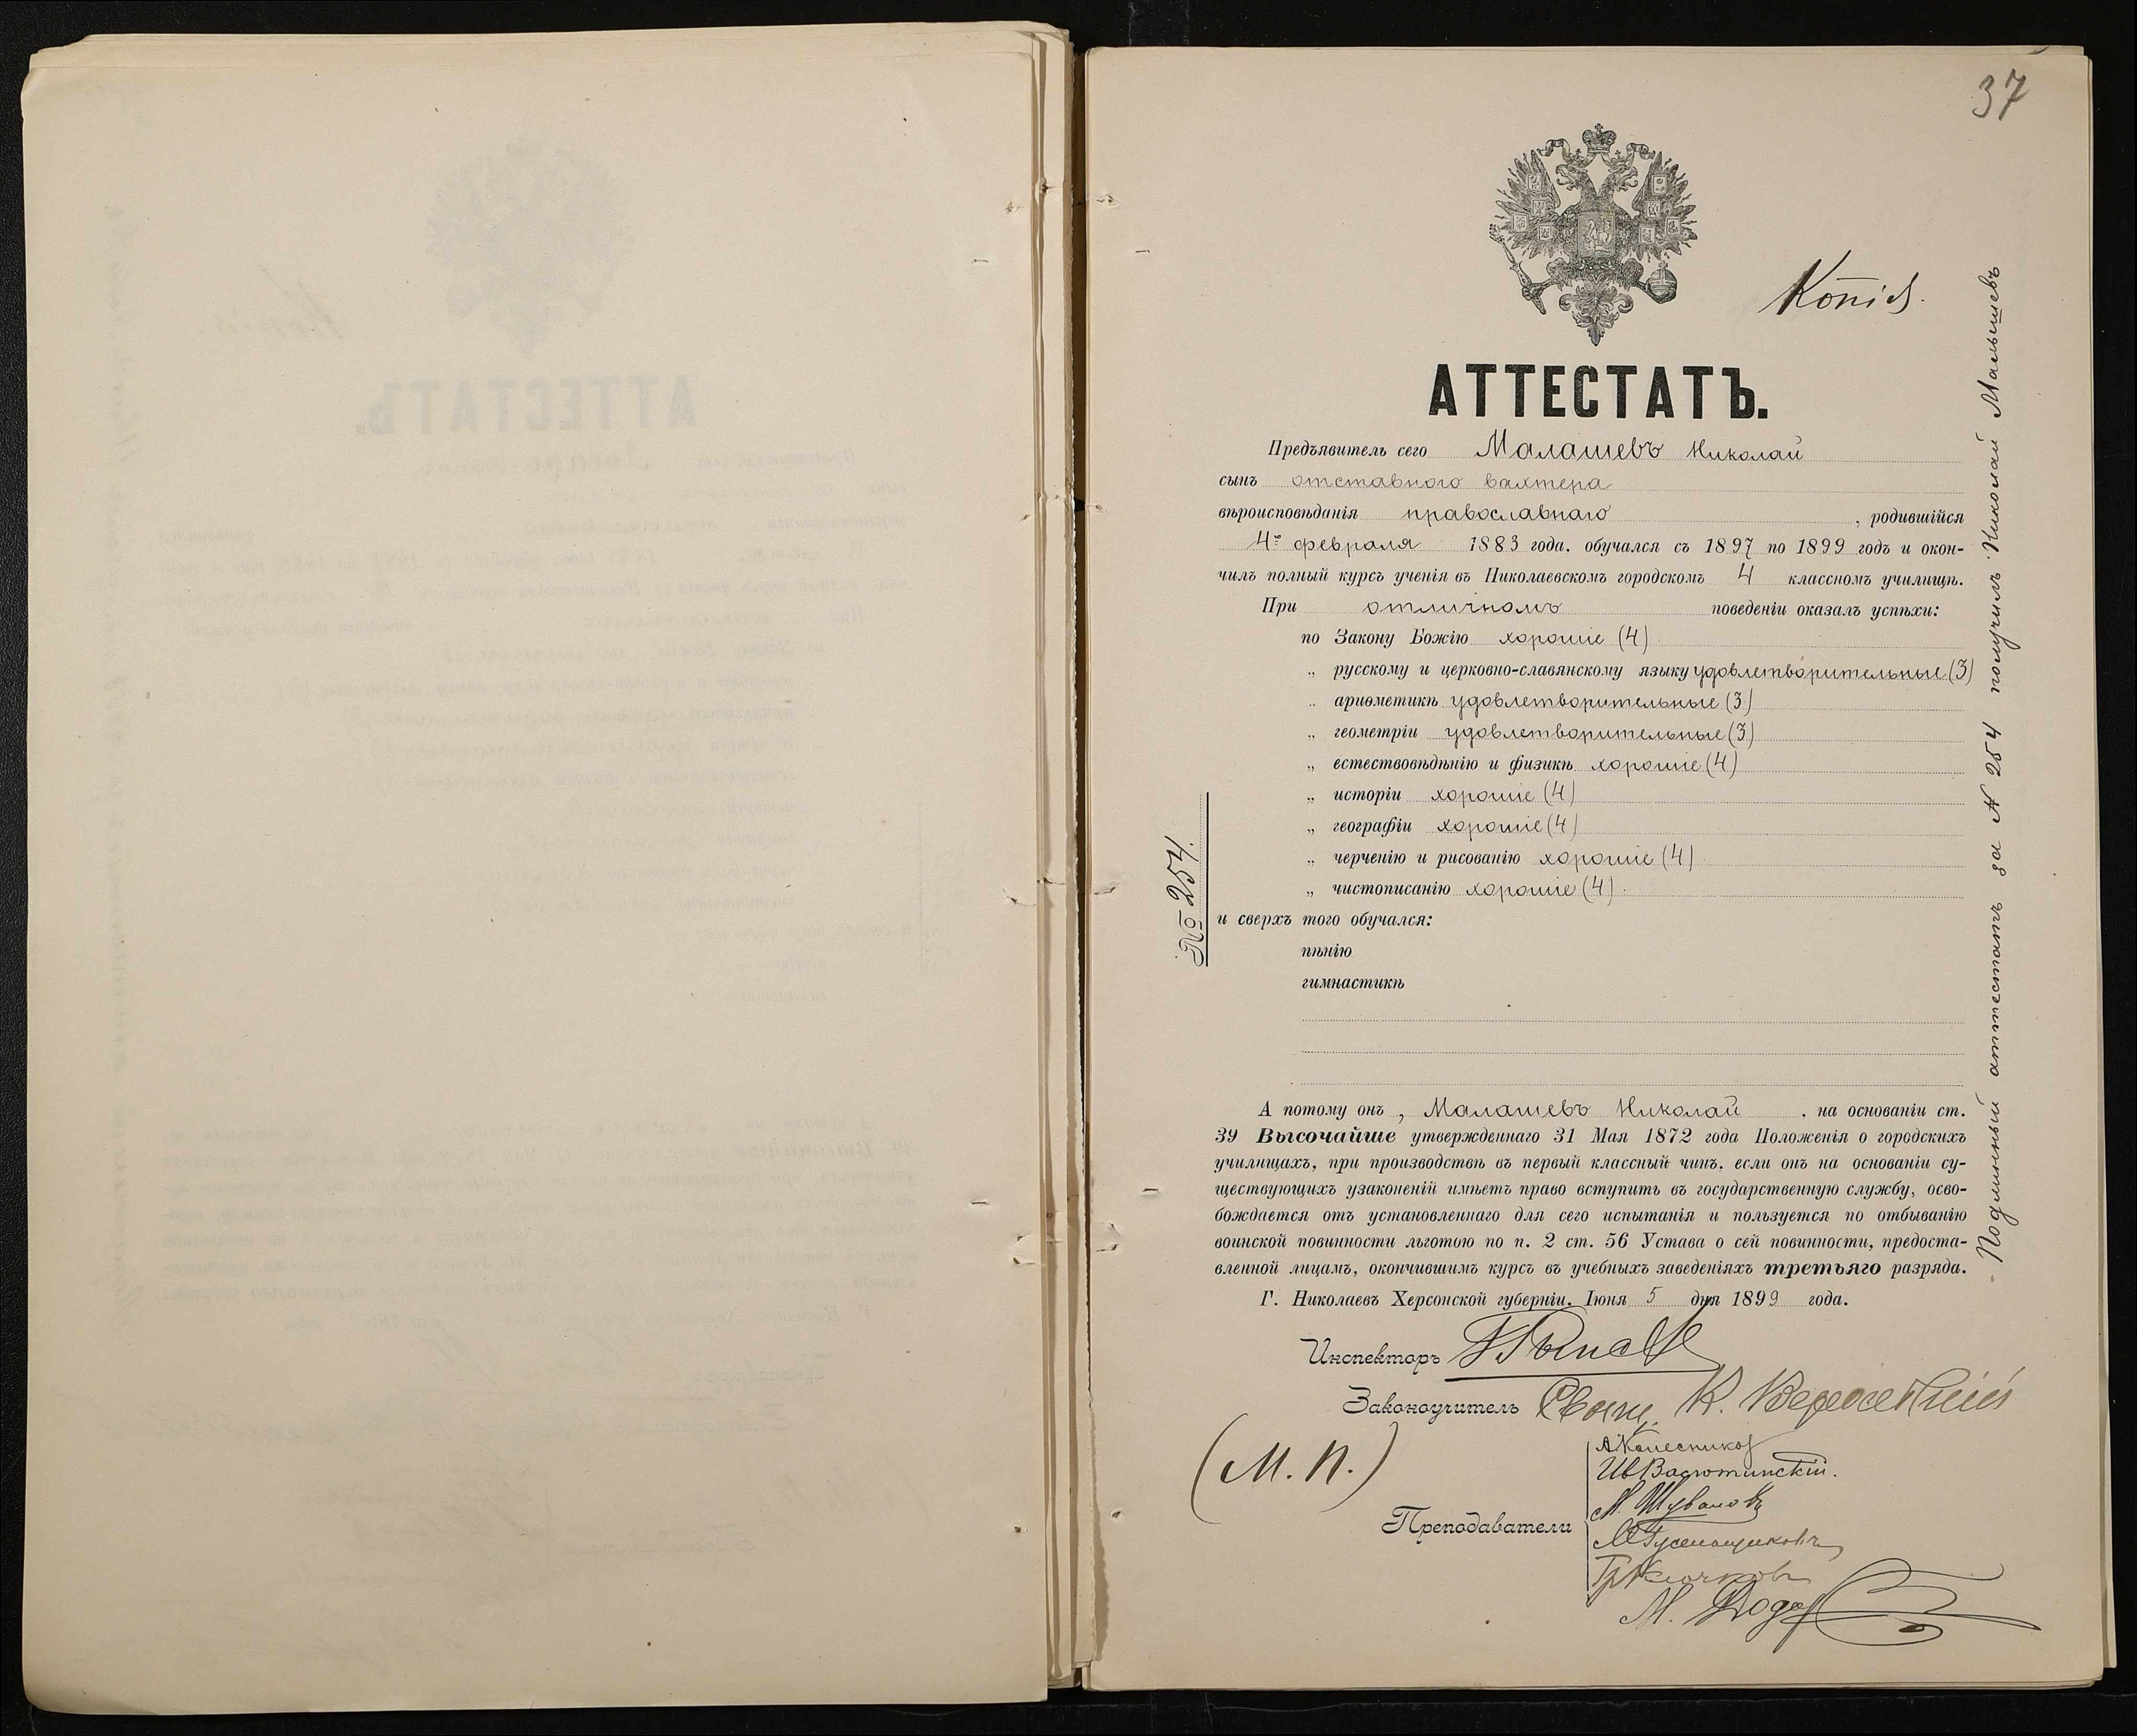 37
Копія.
АТТЕСТАТЪ.
Предъявитель сего Малашевъ Николай
сынъ отставного вахтера
вѣроисповѣданія православнаго, родившійся
4го февраля 1883 года. обучался съ 1897 по 1899 годъ и окон-
чилъ полный курсъ ученія въ Николаевскомъ городскомъ 4 классномъ училищѣ.
При отличномъ поведеніи оказалъ успѣхи:
по Закону Божію хорошіе (4)
„ русскому и церковно-славянскому языку удовлетворительные (3)
„ ариѳметикѣ удовлетворительные (3)
„ геометріи удовлетворительные (3)
„ естествовѣдѣнію и физикѣ хорошіе (4)
„ исторіи хорошіе (4)
„ географіи хорошіе (4)
„ черченію и рисованію хорошіе (4)
„ чистописанію хорошіе (4).
и сверхъ того обучался:
пѣнію
гимнастикѣ
№ 254.
А потому онъ, Малашевъ Николай, на основаніи ст.
39 Высочайше утвержденнаго 31 Мая 1872 года Положенія о городскихъ
училищахъ, при производствѣ въ первый классный чинъ, если онъ на основаніи су-
ществующихъ узаконеній имѣетъ право вступить въ государственную службу, осво-
бождается отъ установленнаго для сего испытанія и пользуется по отбыванію
воинской повинности льготою по п. 2 ст. 56 Устава о сей повинности, предоста-
вленной лицамъ, окончившимъ курсъ въ учебныхъ заведеніяхъ третьяго разряда.
Г. Николаевъ Херсонской губерніи. Іюня 5 дня 1899 года.
Инспекторъ
Законоучитель Свящ. К.
(М. П.)
Преподаватели
А Колесников
Ив Васютинскій.
М. Шуваловъ
Гр Клочковъ
М.
Подлинный аттестатъ за № 254 получилъ Николай Малышевъ